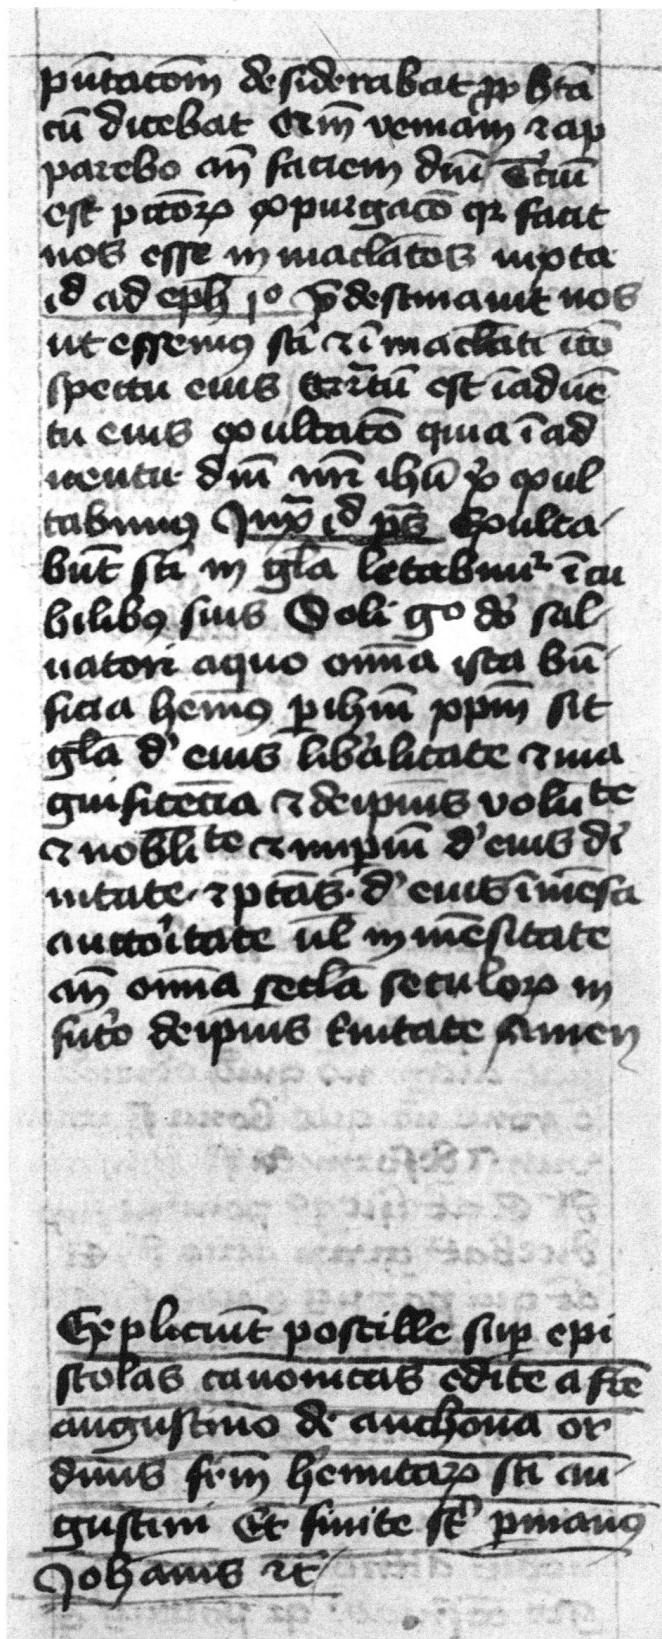 pñtacõm desiderabat ꝓphã
cũ dicebat Qm̃ veniam ⁊ ap
parebo añ faciem dnĩ Terciũ
est pctõꝝ expurgacõ qꝛ facit
nos esse in maclatos iuxta
id ad eph jº pᵉdestinauit nos
ut essemꝰ scĩ ⁊ ĩmaculati ĩ cõ
spectu eius est ĩ aduẽ
tu eius exultacõ quia ĩ ad
uentu dnĩ nr̃i ihũ xp̃i exul
tabimꝰ Juxᵃ id pŝ Exulta
bũt scĩ in gl̃a letabũtʳ ĩ cu
bilibꝰ suis Soli gº dõ sal
uatori a quo om̃ia ista bñ
ficia hem̃ꝰ ꝑ ihm̃ xp̃m sit
gl̃a d' eius lib'alitate ⁊ ma
gnificẽcia ⁊ de ipius volũte
⁊ nobl̃ite ⁊ imꝑiũ d' eius di
uitate ⁊ ptãs d' eius ĩmẽsa
auctoritate ul̃ in mẽsitate
añ om̃ia secl̃a seculoꝝ in
futᵒ de ipius Amen
Expliciũt postille suꝑ epi
stolas canonicas edite a fr̃e
augustino de anchona or
dinis fr̃m h'emitaꝝ scĩ au
gustini Et finite st̃ ꝑ manꝰ
Johannis ⁊c̃